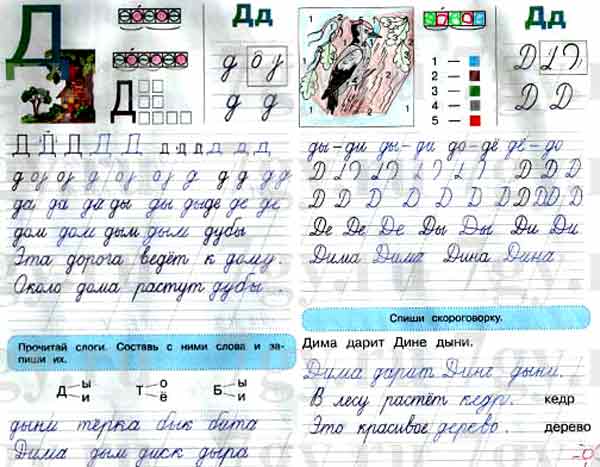 Д
Дд
д о у
д д
Д
Д Д Д Д Д д д д д д
д оу оу д оу оу д д д д д
да да да ды ды дыде де де
дом дом дым дым дубы
Эта дорога ведёт к дому.
Около дома растут дубы.
Прочитай слоги. Составь с ними слова и запиши их.
Д ы и Т о ё Б ы и
дыни тёрка бык бита
Дима дым диск дыра
Дд
1 —
2 —
3 —
4 —
5 —
Д Д
ды-ди ды-ди до-дё дё-до
Де Де Де Ды Ды Ди Ди
Дима Дима Дина Дина
Спиши скороговорку.
Дима дарит Дине дыни.
Дима дарит Дине дыни.
В лесу растёт кедр. кедр
Это красивое дерево. дерево